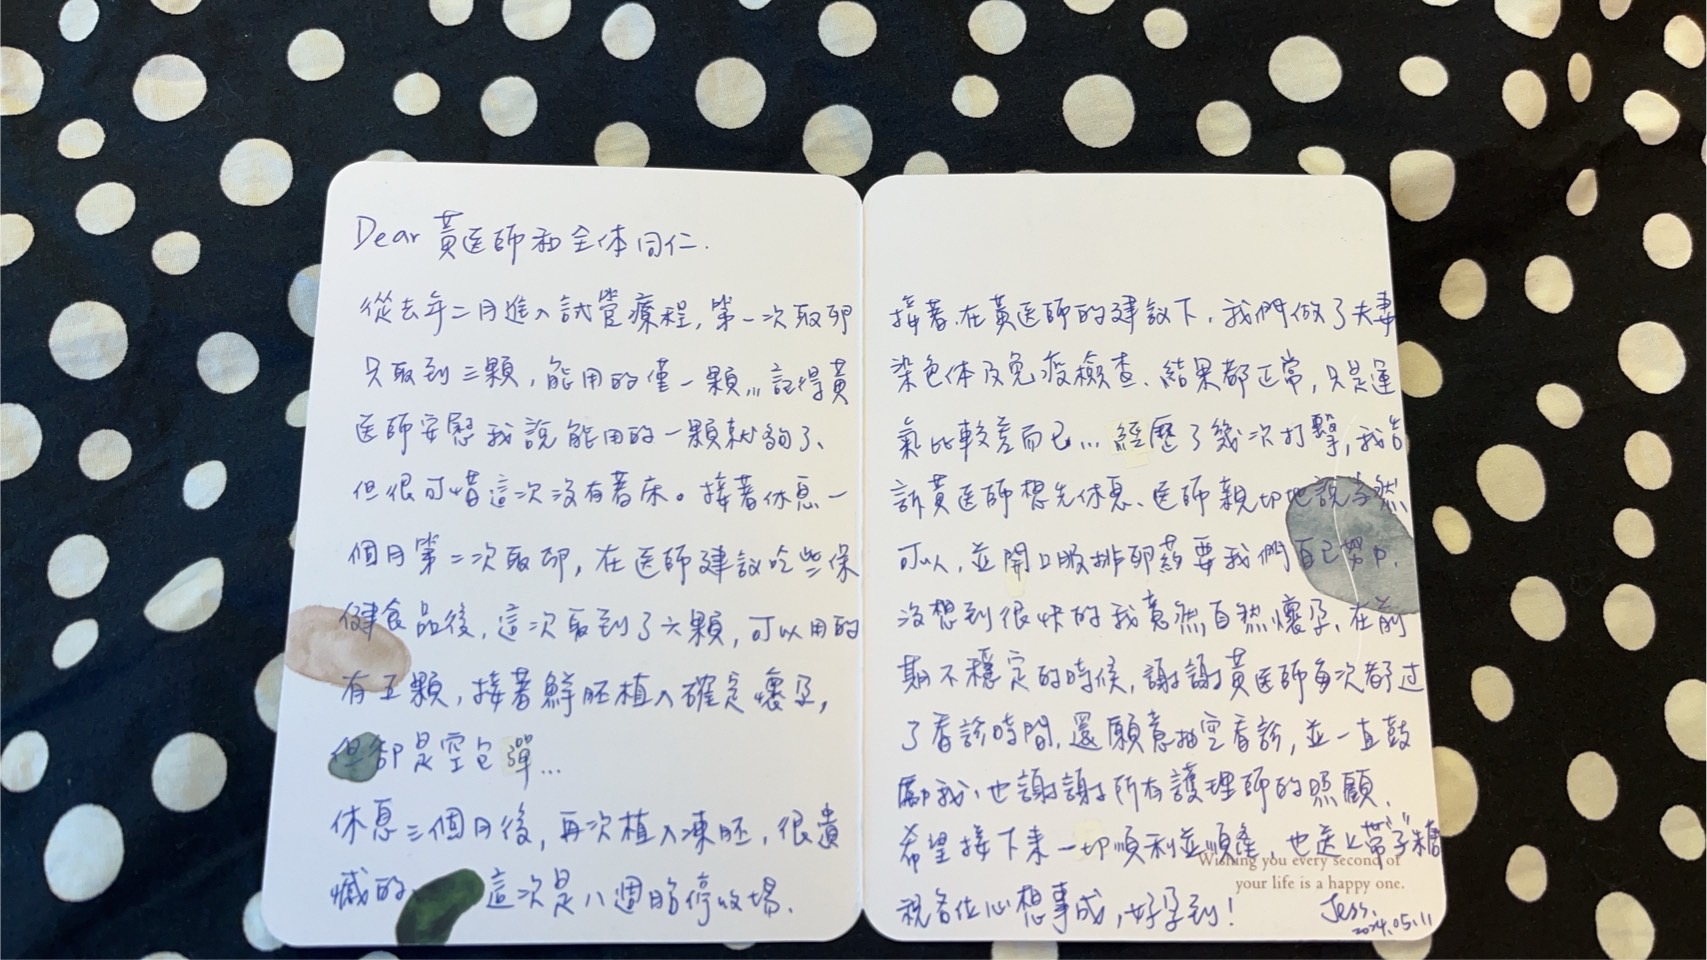 Dear 黃医師和全体同仁.
從去年二月進入試管療程, 第一次取卵
只取到三顆, 能用的僅一顆… 記得黃
医師安慰我說能用的一顆就夠了、
但很可惜這次沒有著床。接著休息一
個月第二次取卵, 在医師建議吃些保
健食品後, 這次取到了六顆, 可以用的
有五顆, 接著鮮胚植入確定懷孕,
但卻是空包彈...
休息三個月後, 再次植入凍胚, 很遺
憾的 這次是八週胎停收場.
接著、在黃医師的建議下, 我們做了夫妻
染色体及免疫檢查、結果都正常, 只是運
氣比較差而已... 經歷了幾次打擊, 我告
訴黃医師想先休息、医師親切地說当然
可以, 並開口服排卵葯要我們自己努力.
沒想到很妹的我竟然自然懷孕、在前
期不穩定的時候, 謝謝黃医師每次都过
了看診時間, 還願意抽空看診, 並一直鼓
勵我、也謝謝所有護理師的照顧.
希望接下來一切順利並順產, 也送上"帶子"糖
祝各位心想事成, 好孕到!
Wishing you every second of
your life is a happy one.
Jess.
2024.05.11